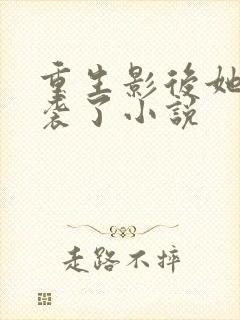 重生影後她
襲了小說
走路不摔